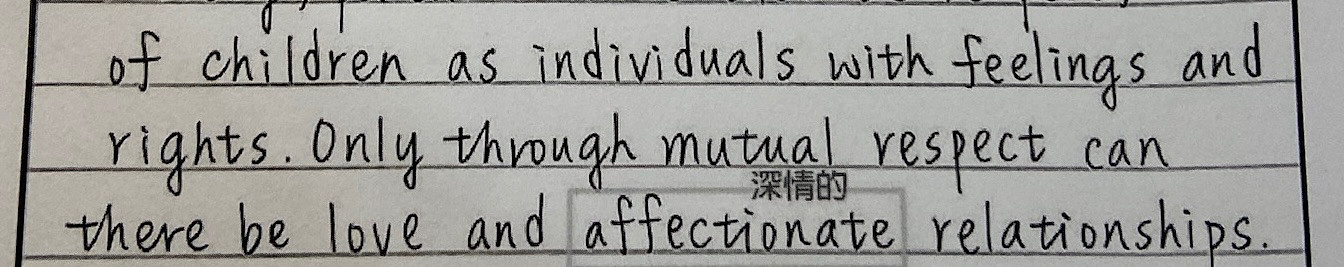 of children as individuals with feelings and
rights. Only through mutual respect can
深情的
there be love and affectionate relationships.